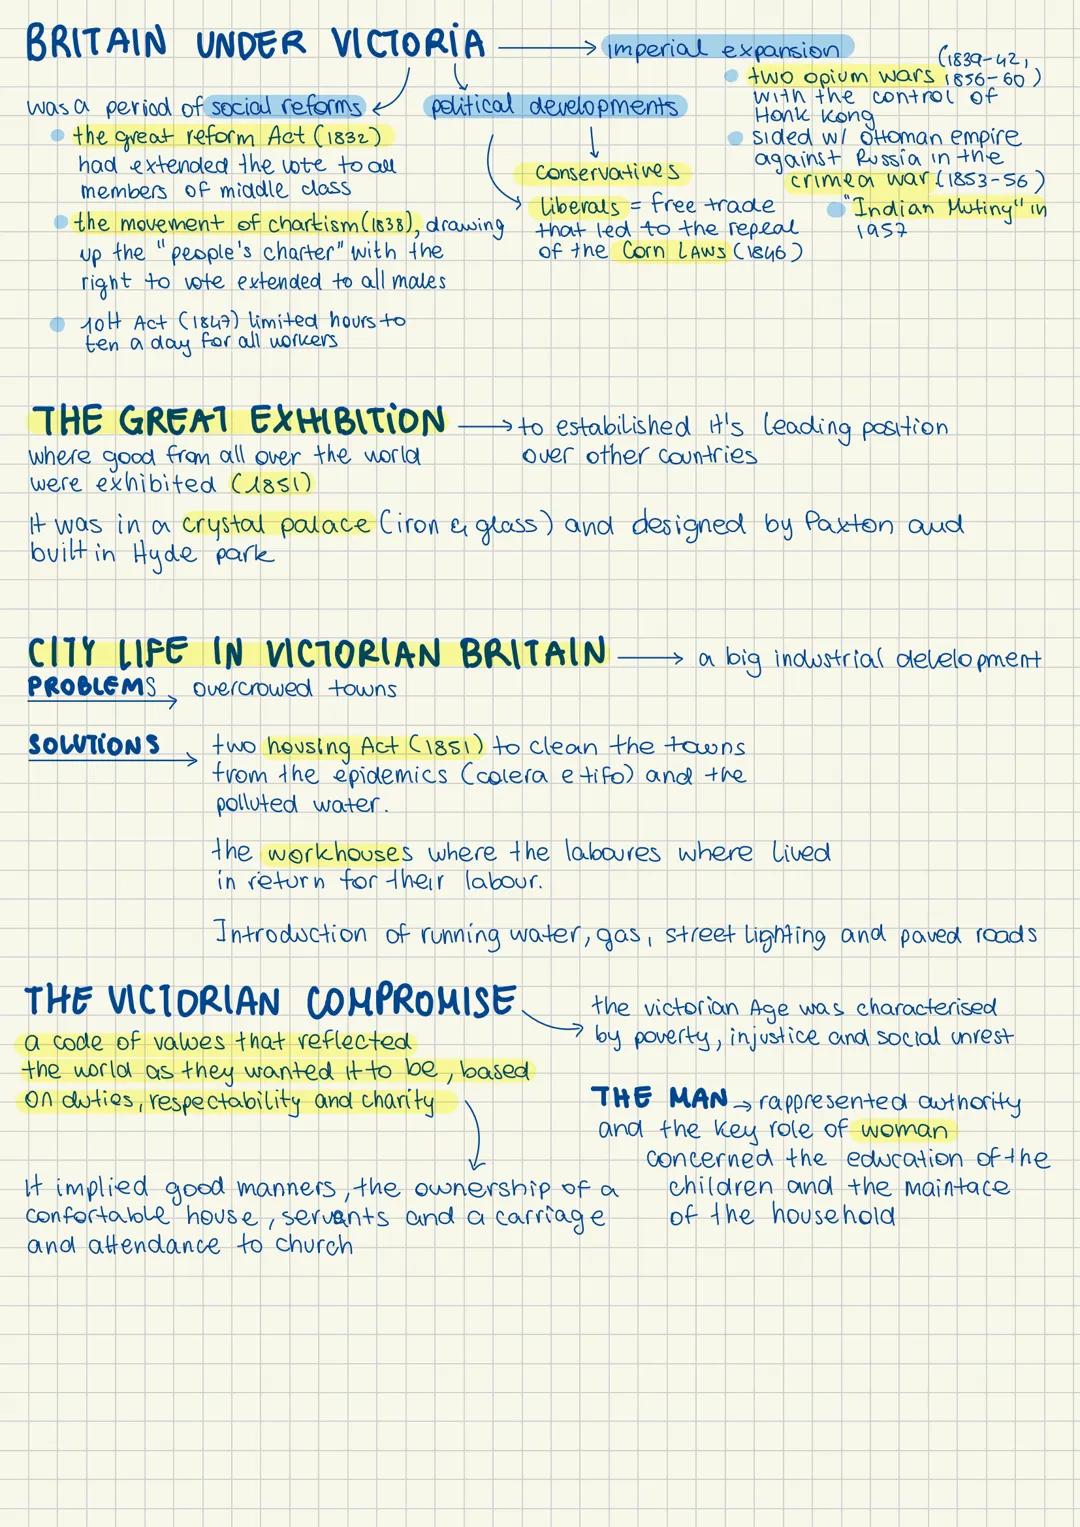 BRITAIN UNDER VICTORIA → imperial expansion
was a period of social reforms
the great reform Act (1832)
had extended the vote to all
members of middle class
the movement of chartism (1838), drawing
up the "people's charter" with the
right to vote extended to all males
10H Act (1847) limited hours to
ten a day for all workers
political developments
conservatives
liberals = free trade
that led to the repeal
of the Corn LAWS (1846)
(1839-42,
two opium wars 1856-60)
with the control of
Honk Kong
sided w/ Ottoman empire
against Russia in the
crimea war (1853-56)
"Indian Mutiny" in
1957
THE GREAT EXHIBITION → to estabilished it's leading position
over other countries
where good from all over the world
were exhibited (1851)
It was in a crystal palace (iron & glass) and designed by Paxton and
built in Hyde park
CITY LIFE IN VICTORIAN BRITAIN → a big industrial delelopment
PROBLEMS → overcrowed towns
SOLUTIONS → two housing Act (1851) to clean the towns
from the epidemics (colera e tifo) and the
polluted water.
the workhouses where the laboures where lived
in return for their labour.
Introduction of running water, gas, street lighting and paved roads
THE VICTORIAN COMPROMISE
a code of values that reflected
the world as they wanted it to be, based
on duties, respectability and charity
It implied good manners, the ownership of a
confortable house, servants and a carriage
and attendance to church
the victorian Age was characterised
by poverty, injustice and social unrest
THE MAN → rappresented authority
and the key role of woman
concerned the education of the
children and the maintace
of the household